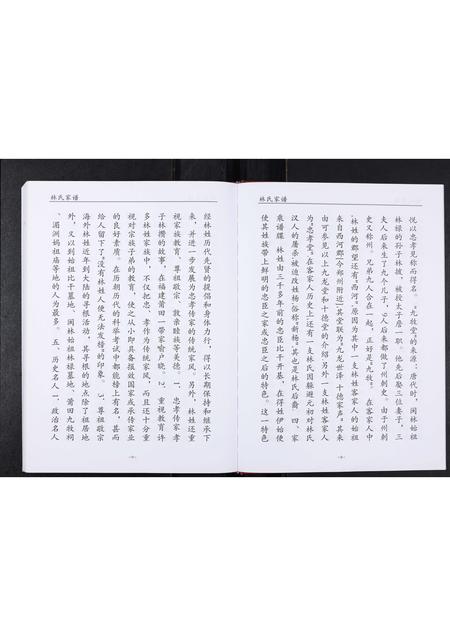 林氏家谱
悦以忠孝见称而得名。“九牧堂”的来源：唐代时，闽林始祖
林禄的孙子林披，被授太子詹一职。他先后娶三位妻子，三
夫人后来生了九个儿子，9人后来都做了州刺史。由于州刺
史又称州。兄弟九人合在一起，正好是“九牧”。在客家人中
,林姓的郡望还有“西河”。原因为其中一支林姓客家人的始祖
来自西河郡(今郑州附近)其堂联为“九龙世泽 十德家声”。其来
由可参见以上九龙堂和十德堂的介绍另外一支林姓客家人
为“忠孝堂”。在客家人历史上,还有一支林氏因躲避元初对林氏
汉人的屠杀被迫改姓杨俗称“荷杨”。其也是林氏后裔 四、家
乘谱牒 林姓由三千多年前的忠臣比干开基，在得姓伊始便
使其姓族带上鲜明的忠臣之家或忠臣之后的特色。这一特色
林氏家谱
经林姓历代先贤的提倡和身体力行，得以长期保持和继承下
来，并进一步发展为忠孝传家的传统家风。另外，林姓还重
视家族教育、尊祖敬宗、敦亲睦族等美德。一、忠孝传家孝
子林攒的故事，在福建莆田一带家喻户晓。2、重视教育许
多林姓家族中，不仅把忠、孝作为传统家风，而且还十分重
视对宗族子弟的教育，使之从小即具备报效国家或承传家业
的良好素质。在历朝历代的科举考试中都能榜上有名，甚而
给人留下了“没有林姓人便无法发榜”的印象。3、尊祖敬宗
海外林姓近年到大陆的寻根活动，其寻根的地点除了祖居地
外，又以到始祖比干墓地、闽林始祖林禄墓地、莆田九牧祠
、湄洲妈祖庙等地的人为最多。 五、历史名人 一、政治名人